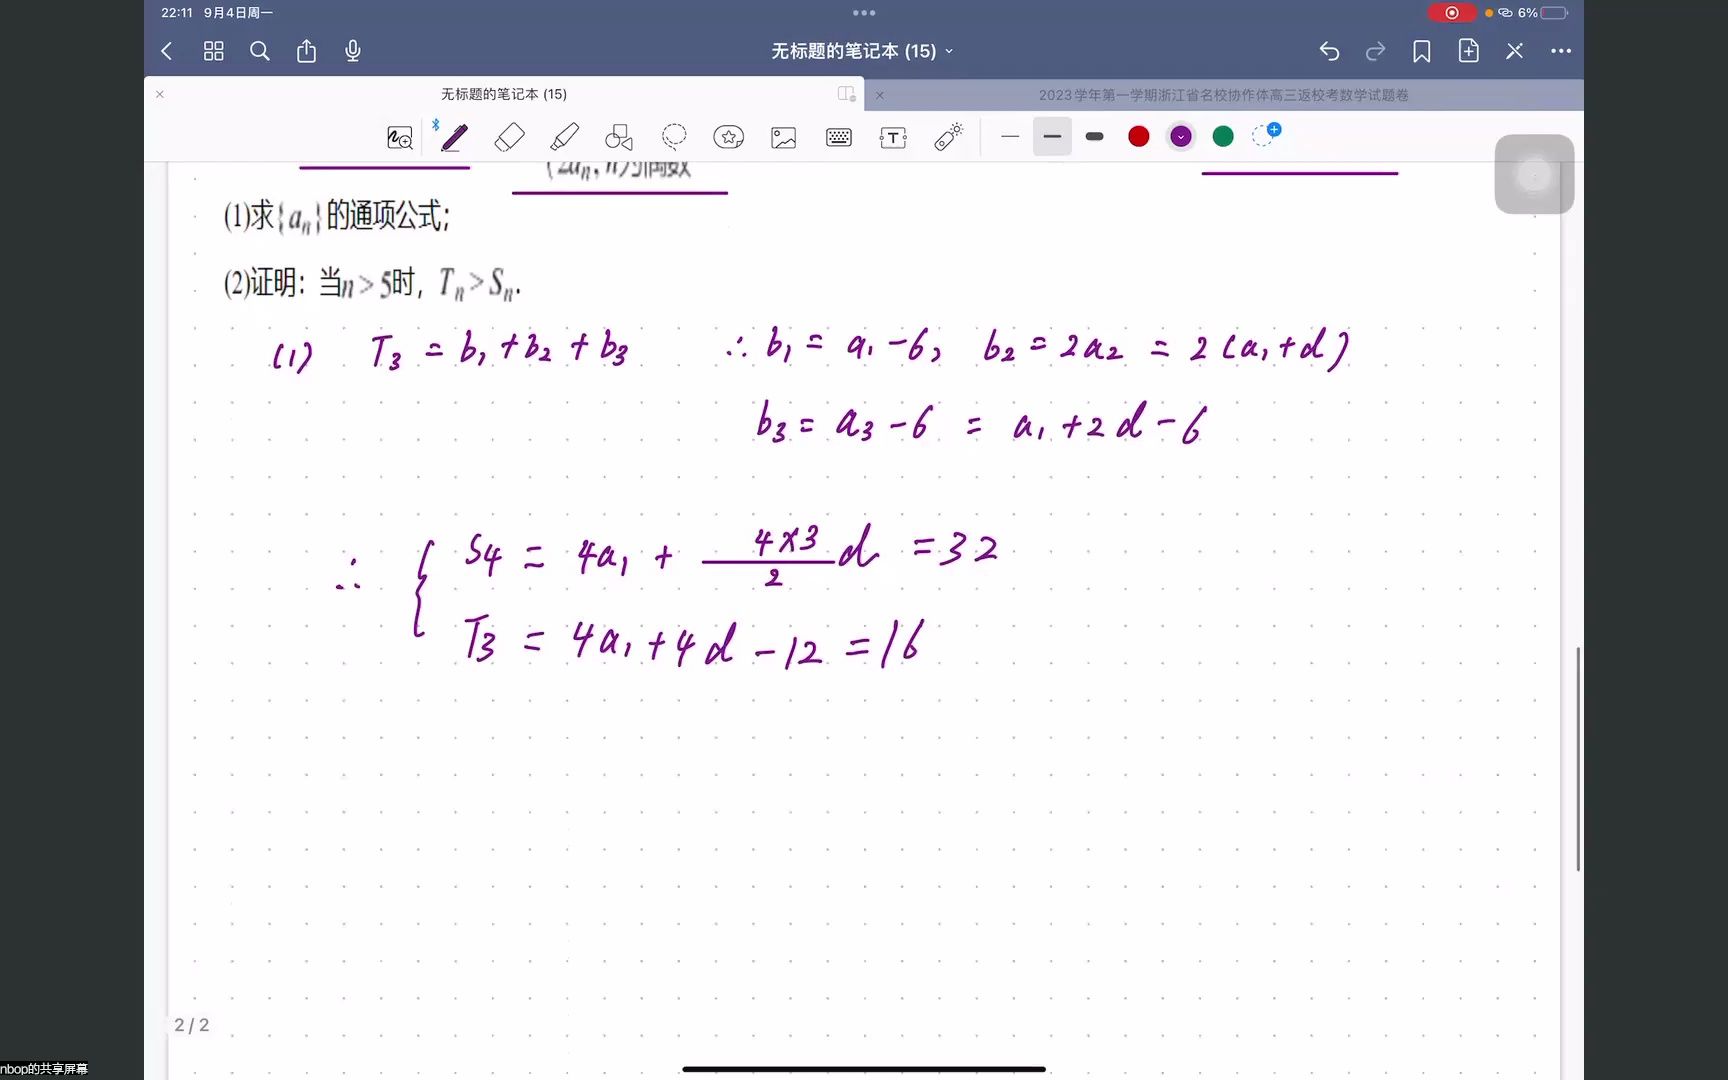 22:11 9月4日周一
6%
无标题的笔记本 (15)
无标题的笔记本 (15)
2023学年第一学期浙江省名校协作体高三返校考数学试题卷
(1)求{aₙ}的通项公式;
(2)证明: 当n>5时, Tₙ>Sₙ.
(1) T₃ = b₁ + b₂ + b₃ ∴ b₁ = a₁ - 6, b₂ = 2a₂ = 2(a₁+d)
b₃ = a₃ - 6 = a₁ + 2d - 6
∴ { S₄ = 4a₁ + 4×3/2 d = 32
T₃ = 4a₁ + 4d - 12 = 16
2 / 2
nbop的共享屏幕